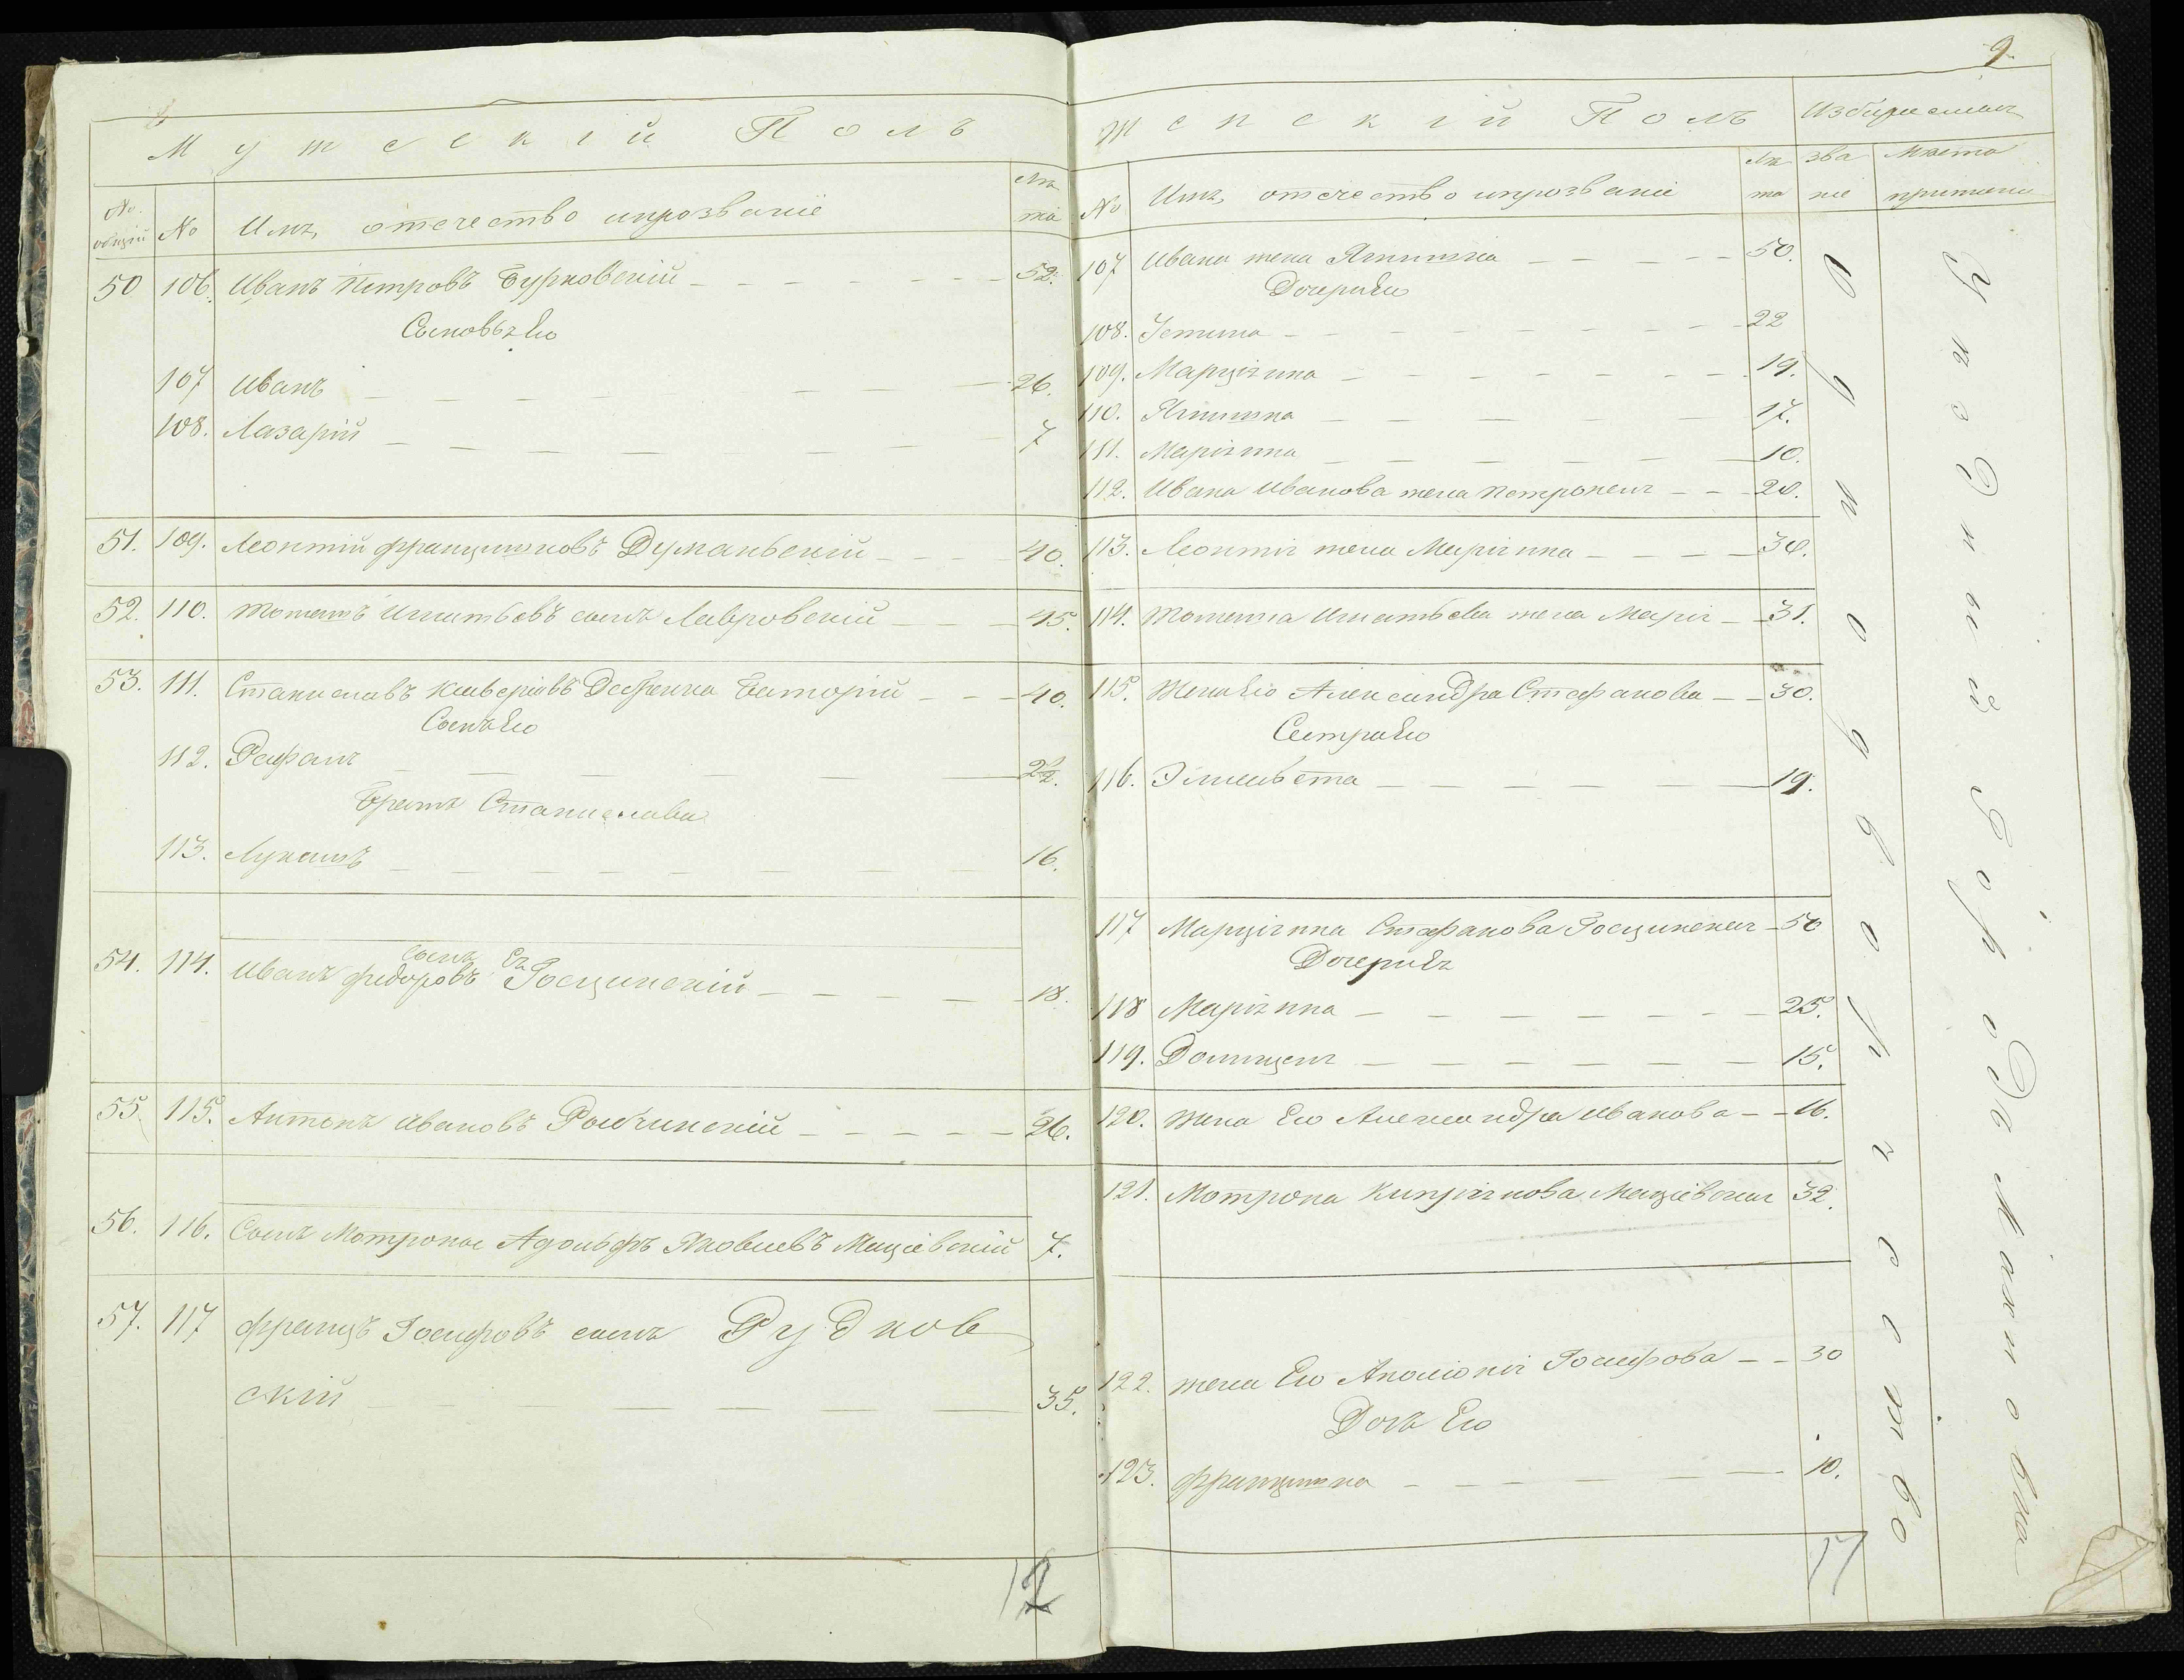 Мужескій Полъ
№ общій № Имя, отечество ипрозваніе Лѣта
50 106. Иванъ Петровъ Бурковскій 52.
Сыновья Его
107 Иванъ 26.
108. Лазарій 7
51. 109. Леонтій францишковъ Думаньскій 40.
52. 110. Томашъ Игнатьевъ сынъ Лавровскій 45.
53. 111. Станиславъ Ксаверіовъ Баторій 40.
Сынъ Его
112. Рафалъ
Братъ Станислава
113. Лукашъ 16.
54. 114. Иванъ федоровъ сынъ Еъ Госцинскій 18.
55. 115. Антонъ Ивановъ 26.
56. 116. Сынъ Мотроны Адольфъ Яковлевъ Мацѣевскій 7.
57. 117 францъ Іосифовъ сынъ Рудков
скій 35.
12
9.
Женскій Полъ
№ Имя, отечество ипрозваніе Лѣта
званіе Мѣста
107 Ивана жена Ягнишка 50.
Дочери Ею
108. Устина 22
109. Марціянна 19.
110. Ягнишка 17.
111. Маріянна 10.
112. Ивана Иванова жена Петронеля 20.
113. Леонтія жена Маріянна 30.
114. Томаша Игнатьева жена Марія 31.
115. Жена Его Александра Стефанова 30.
Сестра Его
116. Элисавета 19.
117 Марціянна Стефанова Госцинская 50
Дочери Еъ
118 Маріянна 25.
119. Домицеля 15.
120. Жена Его Александра Иванова 16.
121. Мотрона Кипріянова Мацѣевская 32.
122. жена Его Аполонія Іосифова 30
Дочь Его
123. францишка 10.
17
Однодворчество